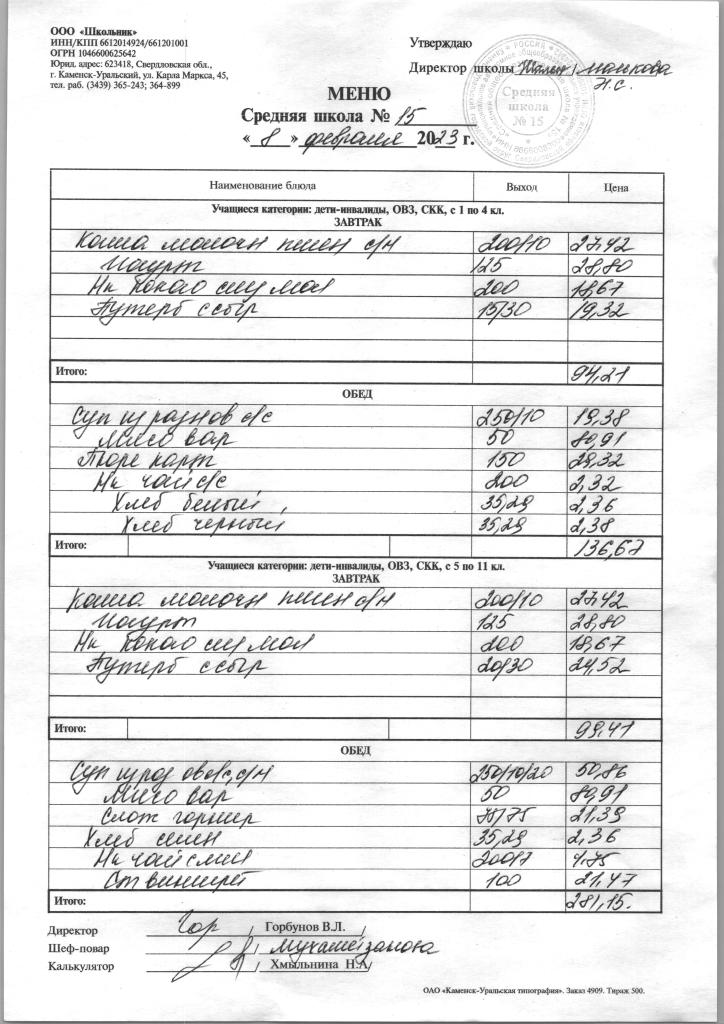 ООО «Школьник»
ИНН/КПП 6612014924/661201001
ОГРН 1046600625642
Юрид. адрес: 623418, Свердловская обл.,
г. Каменск-Уральский, ул. Карла Маркса, 45,
тел. раб. (3439) 365-243; 364-899
Утверждаю
Директор школы / Малькова
Н.С.
РОССИЯ
Средняя
школа
№ 15
МЕНЮ
Средняя школа № 15
« 8 » февраля 2023 г.
Наименование блюда Выход Цена
Учащиеся категории: дети-инвалиды, ОВЗ, СКК, с 1 по 4 кл.
ЗАВТРАК
Каша молочн пшен с/м 200/10 27,42
Йогурт 125 28,80
Нк какао сгущ мол 200 18,67
Бутерб с сыр 15/30 19,32
Итого: 94,21
ОБЕД
Суп из разн ов с/с 250/10 19,38
Мясо вар 50 80,91
Пюре карт 150 29,32
Нк чай с/с 200 2,32
Хлеб белый 35,29 2,36
Хлеб черный 35,29 2,38
Итого: 136,67
Учащиеся категории: дети-инвалиды, ОВЗ, СКК, с 5 по 11 кл.
ЗАВТРАК
Каша молочн пшен с/м 200/10 27,42
Йогурт 125 28,80
Нк какао сгущ мол 200 18,67
Бутерб с сыр 20/30 24,52
Итого: 99,41
ОБЕД
Суп из раз ов с/с, с/м 250/10/20 50,86
Мясо вар 50 80,91
Слож гарнир 75/75 21,39
Хлеб 35,29 2,36
Нк чай с лим 200/7 4,75
Ст винегрет 100 21,47
Итого: 281,15.
Директор Гор / Горбунов В.Л. /
Шеф-повар / /
Калькулятор / Хмыльнина Н.А/
ОАО «Каменск-Уральская типография». Заказ 4909. Тираж 500.